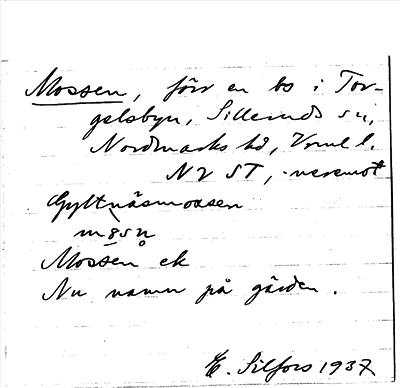 Mossen, förr en bs i Tor-
gelsbyn, Silleruds sn,
Nordmarks hd, Vrml l.
N 2 ST, 
Gyltnäsmossen
Mossen ek
Nu namn på gården.
E. Silfors 1937